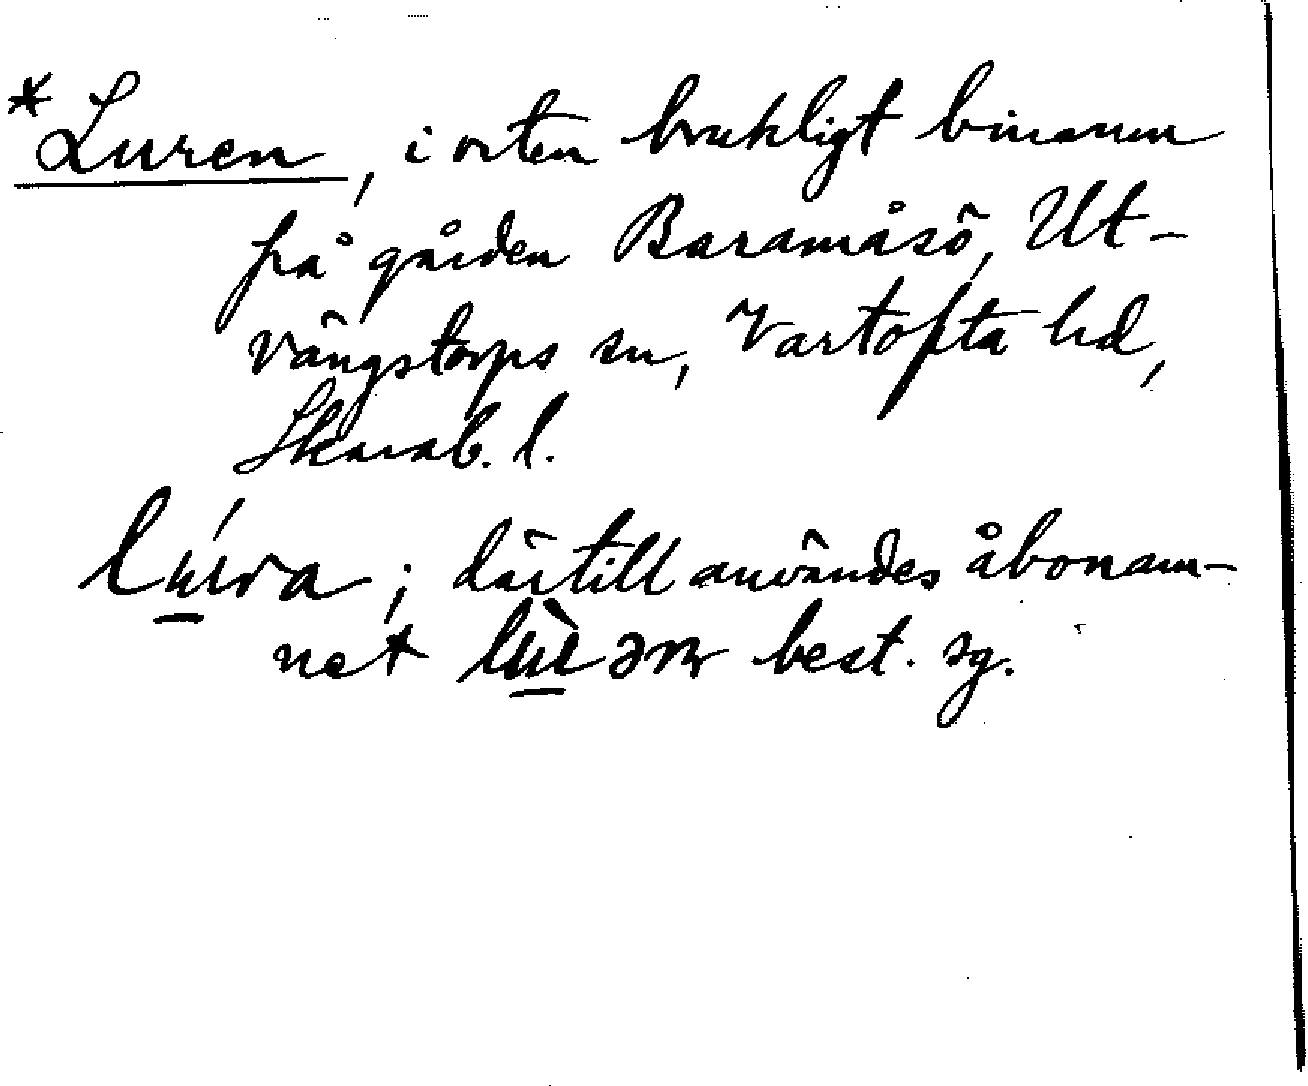 *Luren, i orten brukligt binamn
frå gården Baramåsö, Ut-
vängstorps sn, Vartofta hd,
Skarab. l.
lu̱ra; därtill användes åbonam-
net lù̱rəm best. sg.